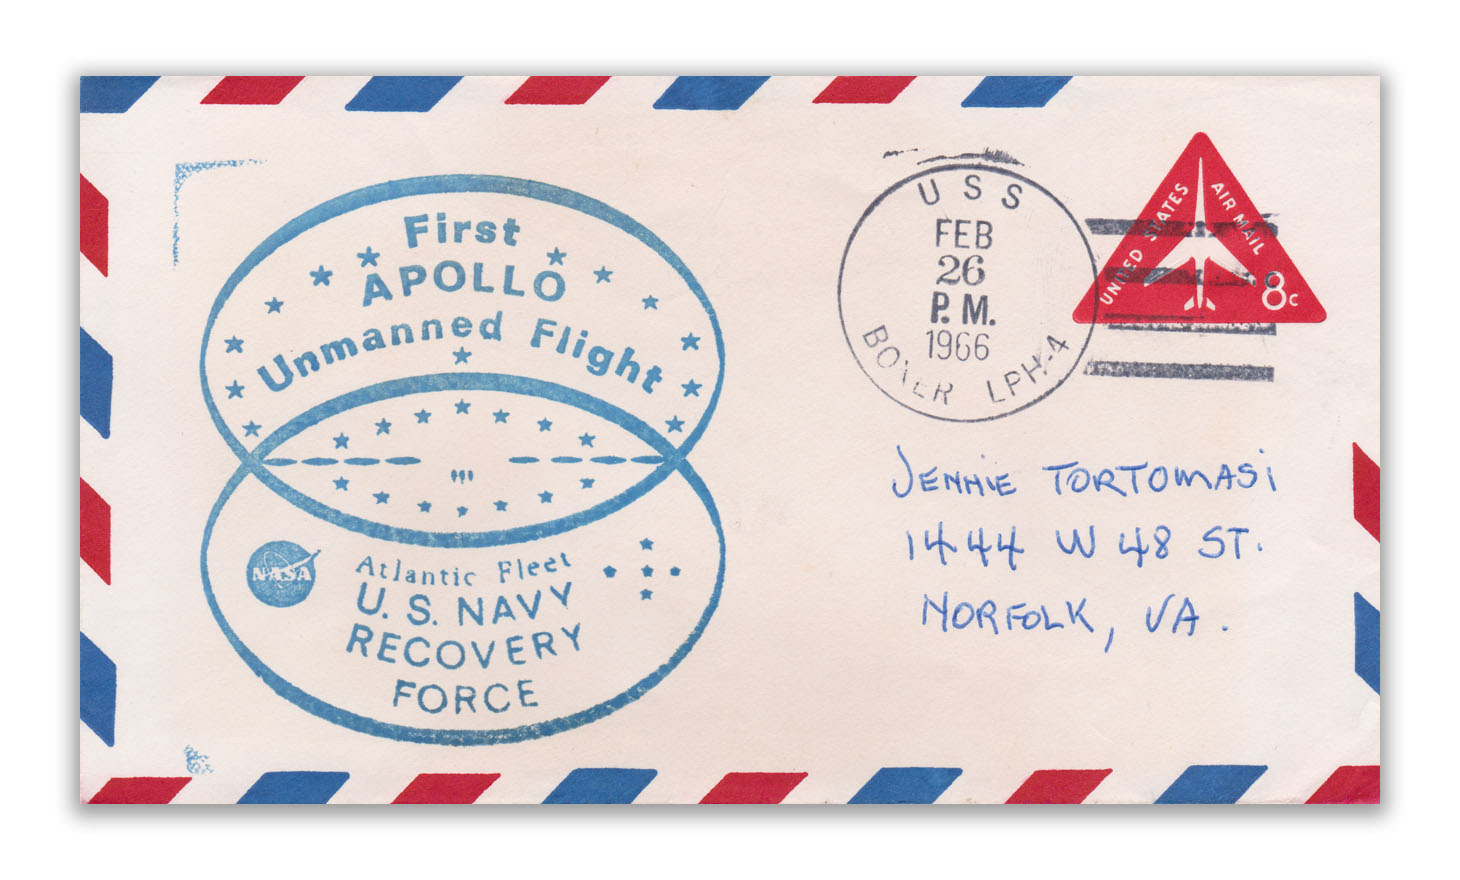 First
APOLLO
Unmanned Flight
NASA
Atlantic Fleet
U. S. NAVY
RECOVERY
FORCE
USS
FEB
26
P. M.
1966
BOXER LPH-4
UNITED STATES AIR MAIL
8c
JENNIE TORTOMASI
1444 W 48 ST.
NORFOLK, VA.